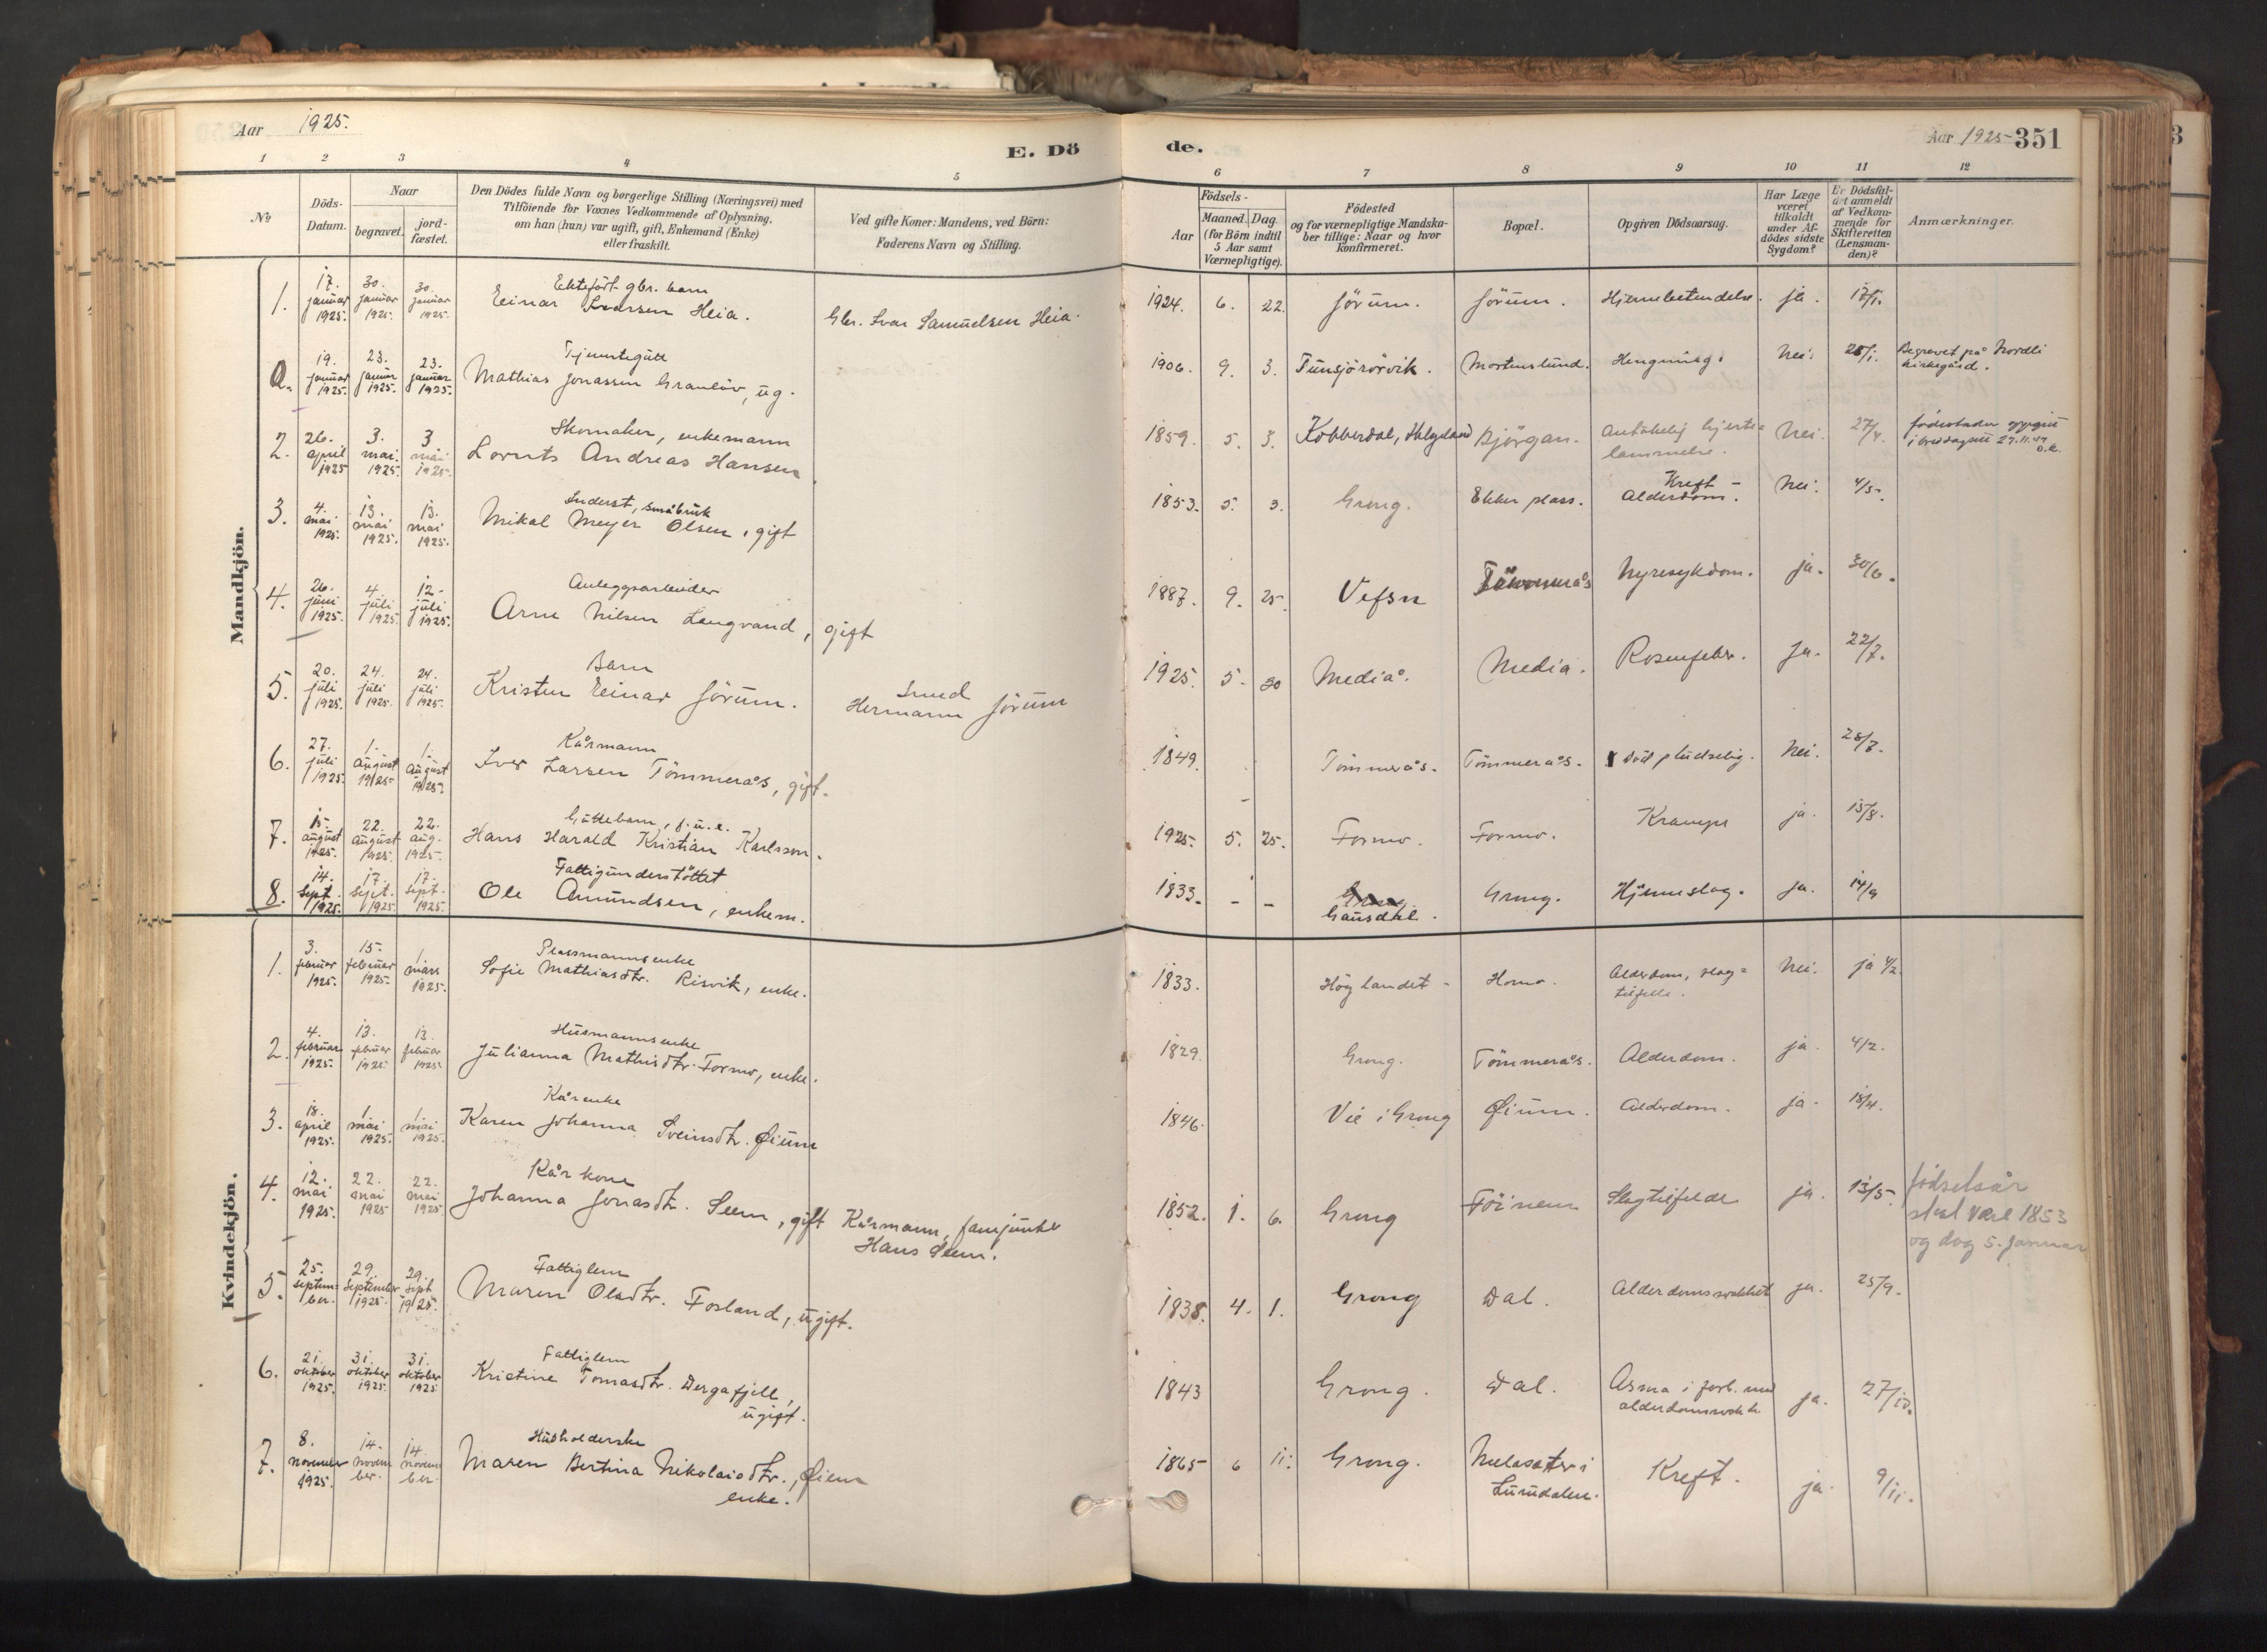 Aar 1925.
E. Dö
1 2 3 4 5
Naar
№ Döds-Datum. begravet. jord-fæstet.
Den Dödes fulde Navn og borgerlige Stilling (Næringsvei) med
Tilföiende for Voxnes Vedkommende af Oplysning,
om han (hun) var ugift, gift, Enkemand (Enke)
eller fraskilt.
Ved gifte Koner: Mandens, ved Börn:
Faderens Navn og Stilling.
Mandkjön.
Ektefödt gbr. barn
1. 17. januar 1925. 30. januar 1925. 30. januar 1925. Einar Ivarsen Heia. Gbr. Ivar Samuelsen Heia.
Tjenstegutt
a. 19. januar 1925. 23. januar 1925. 23. januar 1925. Mathias Jonassen Granlöv, ug.
Skomaker, enkemann
2. 26. april 1925 3. mai. 1925. 3 mai 1925. Lornts Andreas Hansen
Inderst, småbruk
3. 4. mai 1925. 13. mai 1925. 13. mai 1925. Mikal Meyer Olsen, gift
Anleggsarbeider
4. 26. juni 1925. 4. juli 1925. 12. juli 1925. Arne Nilsen Langvand, gift
Barn
5. 20. juli 1925. 24. juli 1925. 24. juli 1925. Kristen Einar Jörum. Smed
Hermann Jörum
Kårmann
6. 27. juli 1925. 1. august 1925. 1. august 1925. Iver Larsen Tömmerås, gift.
Guttebarn, f. u. e.
7. 15. august 1925. 22. august 1925. 22. aug. 1925. Hans Harald Kristian Karlsson.
Fattigunderstöttet
8. 14. sept. 1925. 17. sept. 1925. 17. sept. 1925. Ole Amundsen, enkem.
Kvindekjön.
Plassmannsenke
1. 3. februar 1925. 15. februar 1925. 1 mars 1925. Sofie Mathiasdtr. Risvik, enke.
Husmannsenke
2. 4. februar 1925. 13. februar 1925 13. februar 1925 Julianna Mathisdtr. Formo, enke.
Kårenke
3. 18. april 1925. 1. mai 1925. 1. mai 1925. Karen Johanna Sveinsdtr. Øium
Kårkone
4. 12. mai 1925. 22. mai 1925 22. mai 1925 Johanna Jonasdtr. Seem, gift Kårmann, fanejunker
Hans Seem.
Fattiglem
5. 25. september. 29. september 1925. 29. sept 1925. Maren Olasdtr. Fosland, ugift.
Fattiglem
6. 21. oktober 1925. 31. oktober 1925. 31. oktober 1925 Kristine Tomasdtr. Dergafjell,
ugift.
Husholderske
7. 8. november 1925. 14. november. 14. november. Maren Bertina Nikolaisdtr., Øiem
enke.
de.
Aar 1925 351
6 7 8 9 10 11 12
Födsels-
Aar Maaned. Dag
(for Börn indtil
5 Aar samt
Værnepligtige).
Födested
og for værnepligtige Mandska-
ber tillige: Naar og hvor
konfirmeret.
Bopæl.
Opgiven Dödsaarsag.
Har Læge
været
tilkaldt
under Af-
dödes sidste
Sygdom?
Er Dödsfal-
det anmeldt
af Vedkom-
mende for
Skifteretten
(Lensman-
den)?
Anmærkninger.
1924. 6. 22. Jörum. Jörum. Hjernebetendelse. ja. 17/1.
1906. 9. 3. Tunsjörörvik. Mortenslund. Hengning. Nei. 25/1. Begravet på Nordli
kirkegård.
1859. 5. 3. Kobberdal, Helgeland Bjørgan. Antakelig hjerte=
lammelse. Nei. 27/4. födestaden
27.11.47
1853. 5. 3. Grong. Ekker plass. Kreft –
Alderdom. Nei. 4/5.
1887. 9. 25. Vefsn Tömmerås Nyresykdom. ja. 30/6.
1925. 5. 30 Mediå. Media. Rosenfeber. Ja. 22/7.
1849. Tömmerås. Tömmerås. död pludselig. Nei. 28/7.
1925. 5. 25. Formo. Formo. Krampe ja. 15/8.
1833. – – Grong
Gausdal. Grong. Hjerneslag. ja. 14/9
1833. Höglandet Homo. Alderdom, slag=
tilfelle. Nei. ja 4/2.
1829. Grong. Tömmerås. Alderdom. ja. 4/2.
1846. Vie i Grong Øium. Alderdom. ja. 18/4.
1852. 1. 6. Grong Föinem Slagtilfelde ja. 13/5 fødselsår
skal være 1853
og dag 5. januar
1838. 4. 1. Grong Dal. Alderdomssvakhet ja. 25/9.
1843 Grong. Dal. Asma i forb. med
alderdomssvakh. ja. 27/10.
1865 6 11. Grong. Melasæter i
Lurudalen. Kreft. ja. 9/11.